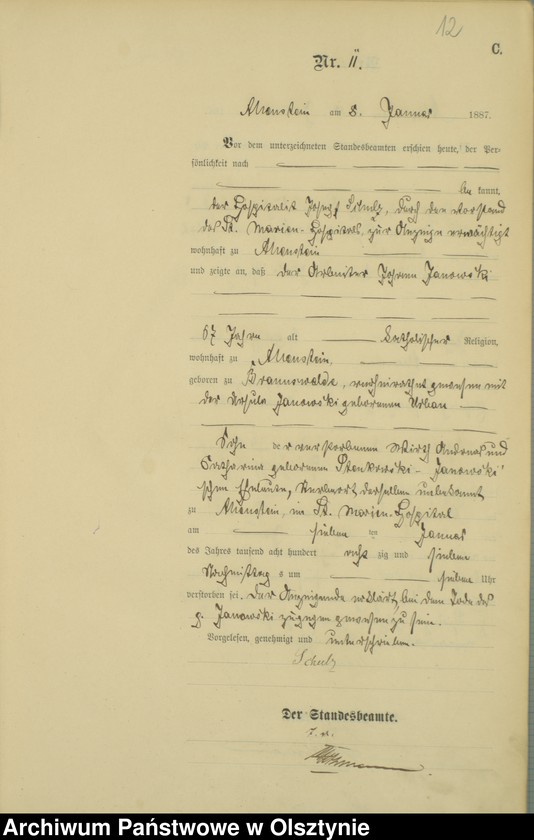 12
C.
Nr. 11.
Allenstein am 8. Januar 1887.
Vor dem unterzeichneten Standesbeamten erschien heute, der Per-
sönlichkeit nach
be kannt,
der Hospitalit Joseph Schulz, durch den Vorstand
des St. Marien-Hospitals, zur Anzeige ermächtigt
wohnhaft zu Allenstein
und zeigte an, daß der Arbeiter Johann Janowski
67 Jahre alt katholischer Religion,
wohnhaft zu Allenstein,
geboren zu Braunswalde, verheirathet gewesen mit
der Ursula Janowski geborenen Urban
Sohn der verstorbenen Wirth Andreas und
Catharina geborenen Stenkowski - Janowski'
schen Eheleute, derselben unbekannt
zu Allenstein, im St. Marien-Hospital
am sieben ten Januar
des Jahres tausend acht hundert acht zig und sieben
Nachmittag s um sieben Uhr
verstorben sei. Der Anzeigende erklärt, bei dem Tode des
p. Janowski zugegen gewesen zu sein.
Vorgelesen, genehmigt und unterschrieben.
Schulz
Der Standesbeamte.
Archiwum Państwowe w Olsztynie